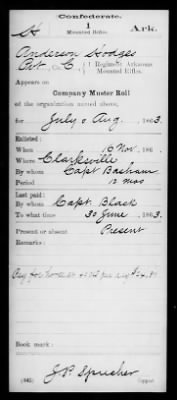 Confederate.
H 1 Ark.
Mounted Rifles.
Anderson Hodges
Pvt, Co. C, 1 Regiment Arkansas
Mounted Rifles.
Appears on
Company Muster Roll
of the organization named above,
for July & Aug, 1863.
Enlisted:
When 16 Nov, 186
Where Clarksville
By whom Capt Basham
Period 12 mos
Last paid:
By whom Capt. Black
To what time 30 June, 1863.
Present or absent Present
Remarks:
Pay for
Book mark:
(642) J P Sprecher
Copyist.